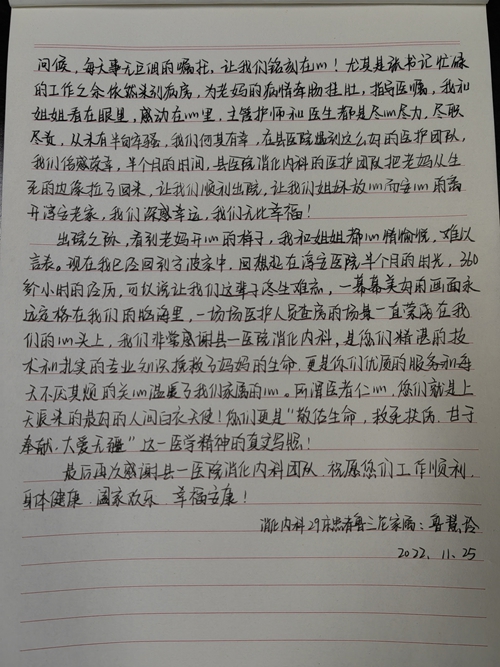 问候，每天事无巨细的嘱托，让我们铭刻在心！尤其是张书记忙碌
的工作之余依然来到病房，为老妈的病情牵肠挂肚，指导医嘱，我和
姐姐看在眼里，感动在心里，主管护师和医生都是尽心尽力，尽职
尽责，从未有半句牢骚，我们何其有幸，在县医院遇到这么好的医护团队，
我们倍感荣幸，半个月的时间，县医院消化内科的医护团队把老妈从生
死的边缘拉了回来，让我们顺利出院，让我们姐妹放心而安心的离
开淳安老家，我们深感幸运，我们无比幸福！
出院之际，看到老妈开心的样子，我和姐姐都心情愉悦，难以
言表。现在我已经回到宁波家中，回想起在淳安医院半个月的时光，360
多个小时的经历，可以说让我们这辈子终生难忘，一幕幕美好的画面永
远定格在我们的脑海里，一场场医护人员查房的场景一直萦荡在我
们的心头上，我们非常感谢县一医院消化内科，是你们精湛的技
术和扎实的专业知识挽救了妈妈的生命，更是你们优质的服务和每
天不厌其烦的关心温暖了我们家属的心。所谓医者仁心，您们就是上
天派来的最好的人间白衣天使！您们更是“敬佑生命，救死扶伤，甘于
奉献，大爱无疆”这一医学精神的真实写照！
最后再次感谢县一医院消化内科团队，祝愿您们工作顺利，
身体健康，阖家欢乐，幸福安康！
消化内科29床患者鲁三花家属：鲁慧玲
2022.11.25